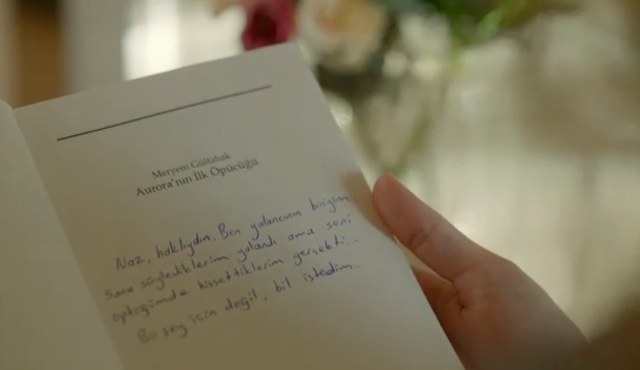 Meryem Gültabak
Aurora'nın İlk Öpücüğü
Naz, haklıydın. Ben yalancının biriyim
Sana söylediklerim yalandı ama seni
öptüğümde hissettiklerim gerçekti...
Bir şey için değil, bil istedim.